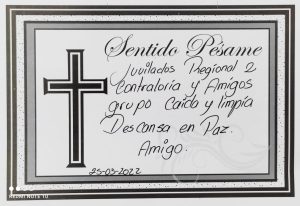 Sentido Pésame
Jubilados Regional 2
Contraloria y Amigos
grupo Caida y limpia
Descansa en Paz.
Amigo.
25-03-2022
REDMI NOTE 10